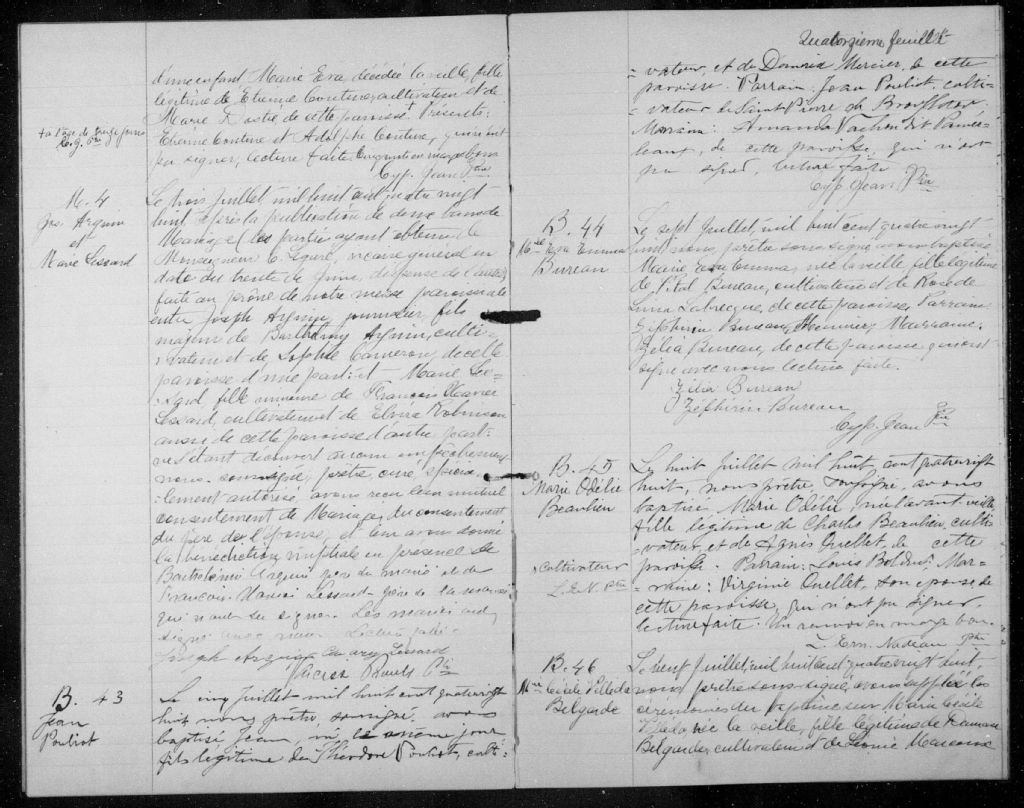 d'une enfant Marie Eva, décédée la veille, fille
légitime de Etienne Couture, cultivateur et de
Marie Dostie de cette paroisse. Présents:
Etienne Couture et Adolphe Couture, qui n'ont
pu signer, lecture faite.
Cyp. Jean Ptre
M. 4
Jos. Arguin
et
Marie Lessard
Le trois Juillet, mil huit cent quatre vingt
huit, après la publication de deux bans de
Mariage, les parties ayant obtenu de
Monseigneur C. Légaré, vicaire général en
date du trente de Juin, dispense de
faite au prône de notre messe paroissiale
entre Joseph Arguin, journalier, fils
majeur de Barthélemy Arguin, culti-
vateur et de Sophie Cameron, de cette
paroisse d'une part: et Marie Les-
sard, fille mineure de François Xavier
Lessard, cultivateur et de Elvire Robinson
aussi de cette paroisse d'autre part:
ne s'étant découvert aucun empêchement
nous soussigné, prêtre curé spécia-
lement autorisé, avons reçu leur mutuel
consentement de Mariage, du consentement
du père de l'épouse, et leur avons donné
la bénédiction nuptiale en présence de
Barthélémi Arguin père du marié et de
François Xavier Lessard père de la mariée
qui n'ont su signer. Les mariés ont
signé avec nous. Lecture faite.
Joseph Arguin Mary Lessard
B. 43
Jean
Pouliot
Le cinq Juillet mil huit cent quatrevingt
huit nous prêtre, soussigné, avons
baptisé Jean, né le même jour,
fils légitime de Théodore Pouliot, culti-
Quatorzième feuillet
vateur, et de Domeria Mercier, de cette
paroisse. Parrain: Jean Pouliot, culti-
vateur de Saint Pierre de Broughton
Marraine: Amanda Vachon dit Pomer-
leau, de cette paroisse, qui n'ont
pu signer, lecture faite
Cyp. Jean Ptre
B. 44
Mie Eva Emma
Bureau
Le sept Juillet, mil huit cent quatre vingt
huit nous, prêtre soussigné avons baptisé
Marie, Eva Emma, née la veille, fille légitime
de Vital Bureau, cultivateur et de Rose de
Lima Labrecque, de cette paroisse, Parrain:
Zéphirin Bureau, Marraine:
Zélia Bureau, de cette paroisse qui ont
signé avec nous lecture faite.
Zélia Bureau
Zéphirin Bureau
Cyp. Jean Ptre
B. 45
Marie Odélie
Beaulieu
x cultivateur
L. E. N. Ptre
Le huit juillet mil huit cent quatrevingt
huit, nous prêtre, soussigné, avons
baptisé Marie Odélie, née l'avant-veille
fille légitime de Charles Beaulieu, culti-
vateur, et de Agnès Ouellet, de cette
paroisse. Parrain: Louis Bolduc x Mar-
raine: Virginie Ouellet, son épouse de
cette paroisse, qui n'ont pu signer,
lecture faite. Un renvoi en marge bon.
L. Ern. Nadeau Ptre
B. 46
Mie Cécile Villeda
Belgarde
Le neuf Juillet, mil huit cent quatre vingt huit,
nous prêtre sous-signé, avons suppléé les
cérémonies du Baptême sur Marie Cécile
née la veille, fille légitime de
Belgarde, cultivateur et de Léonie Marcoux